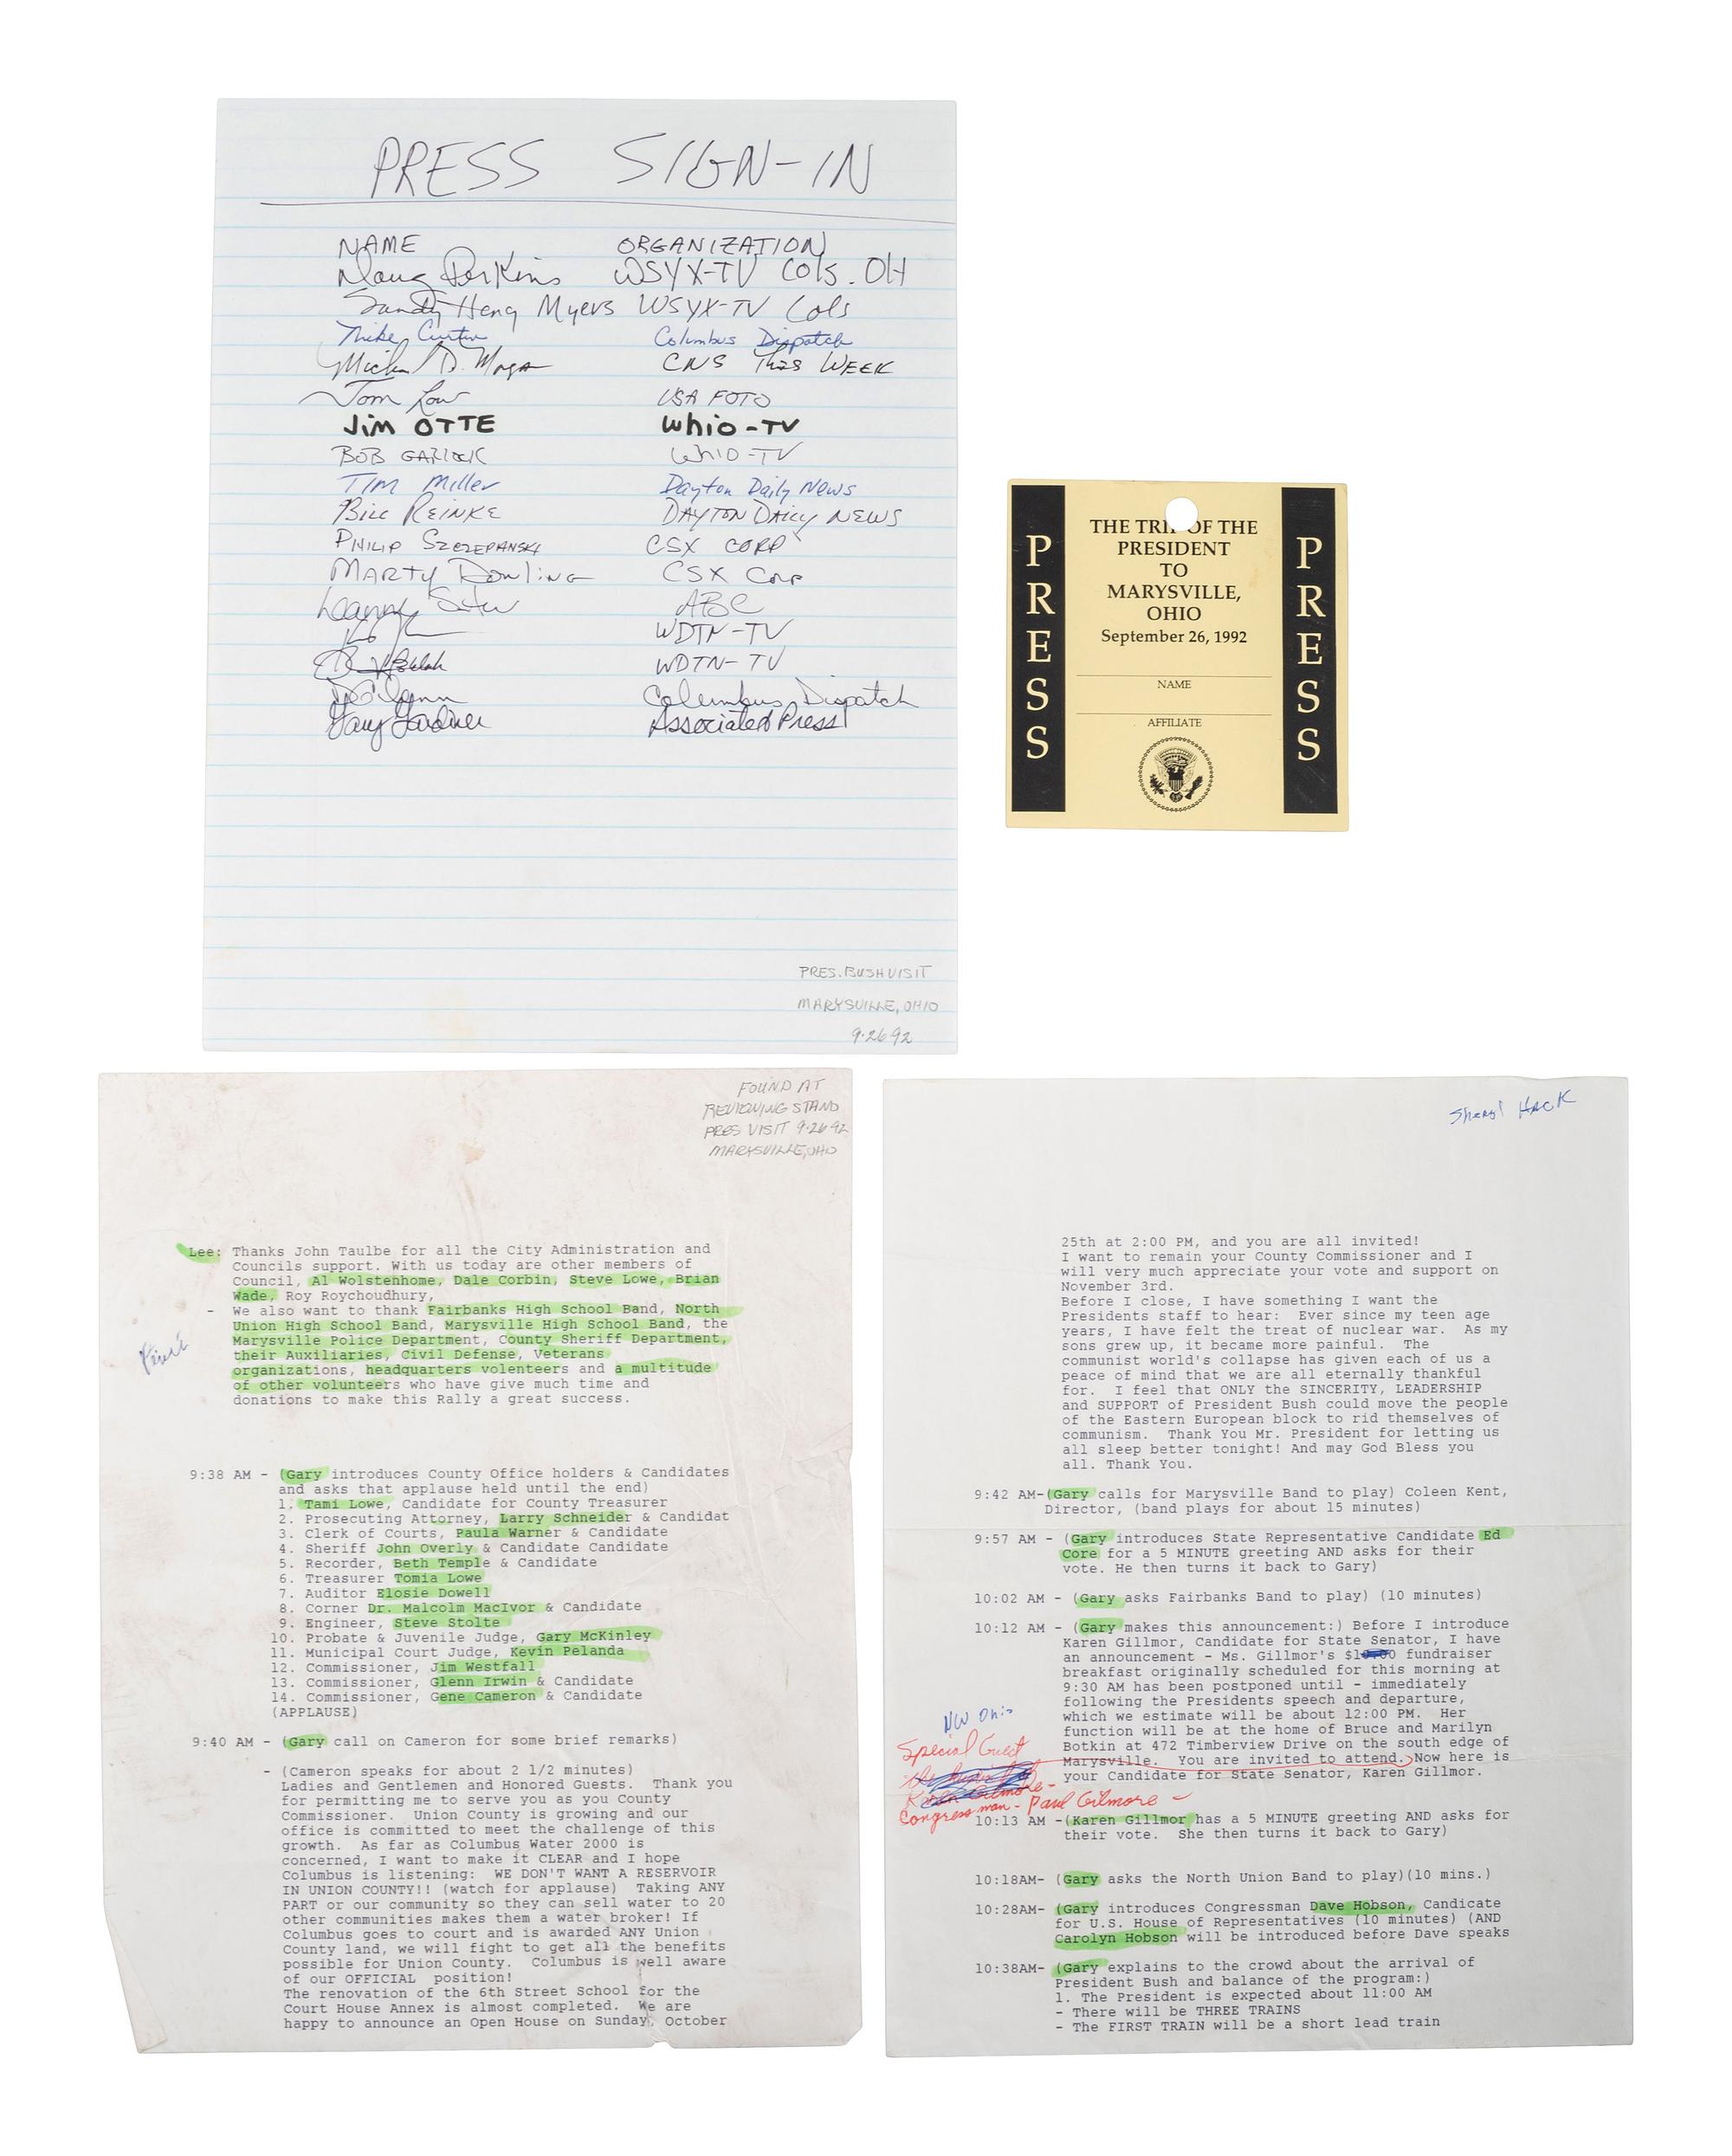 PRESS SIGN-IN
NAME ORGANIZATION
Doug Perkins WSYX-TV Cols. OH
Sandy Heng Myers WSYX-TV Cols
Mike Curtin Columbus Dispatch
Michael D. CNS This WEEK
Tom Low USA FOTO
Jim OTTE Whio-TV
BOB GARLOCK WHIO-TV
Tim Miller Dayton Daily News
Bill REINKE DAYTON DAILY NEWS
PHILIP SZCZEPANSKI CSX CORP
MARTY DOWLING CSX Corp
ABC
WDTN-TV
WDTN-TV
Columbus Dispatch
Gary Gardner Associated Press
PRES. BUSH VISIT
MARYSVILLE, OHIO
9·26·92
PRESS
THE TRIP OF THE
PRESIDENT
TO
MARYSVILLE,
OHIO
September 26, 1992
NAME
AFFILIATE
PRESS
FOUND AT
REVIEWING STAND
PRES VISIT 9·26·92
MARYSVILLE, OHIO
Lee: Thanks John Taulbe for all the City Administration and
Councils support. With us today are other members of
Council, Al Wolstenhome, Dale Corbin, Steve Lowe, Brian
Wade, Roy Roychoudhury,
- We also want to thank Fairbanks High School Band, North
Union High School Band, Marysville High School Band, the
Marysville Police Department, County Sheriff Department,
their Auxiliaries, Civil Defense, Veterans
organizations, headquarters volenteers and a multitude
of other volunteers who have give much time and
donations to make this Rally a great success.
9:38 AM - (Gary introduces County Office holders & Candidates
and asks that applause held until the end)
1. Tami Lowe, Candidate for County Treasurer
2. Prosecuting Attorney, Larry Schneider & Candidat
3. Clerk of Courts, Paula Warner & Candidate
4. Sheriff John Overly & Candidate Candidate
5. Recorder, Beth Temple & Candidate
6. Treasurer Tomia Lowe
7. Auditor Elosie Dowell
8. Corner Dr. Malcolm MacIvor & Candidate
9. Engineer, Steve Stolte
10. Probate & Juvenile Judge, Gary McKinley
11. Municipal Court Judge, Kevin Pelanda
12. Commissioner, Jim Westfall
13. Commissioner, Glenn Irwin & Candidate
14. Commissioner, Gene Cameron & Candidate
(APPLAUSE)
9:40 AM - (Gary call on Cameron for some brief remarks)
- (Cameron speaks for about 2 1/2 minutes)
Ladies and Gentlemen and Honored Guests. Thank you
for permitting me to serve you as you County
Commissioner. Union County is growing and our
office is committed to meet the challenge of this
growth. As far as Columbus Water 2000 is
concerned, I want to make it CLEAR and I hope
Columbus is listening: WE DON'T WANT A RESERVOIR
IN UNION COUNTY!! (watch for applause) Taking ANY
PART or our community so they can sell water to 20
other communities makes them a water broker! If
Columbus goes to court and is awarded ANY Union
County land, we will fight to get all the benefits
possible for Union County. Columbus is well aware
of our OFFICIAL position!
The renovation of the 6th Street School for the
Court House Annex is almost completed. We are
happy to announce an Open House on Sunday, October
Sheryl HACK
25th at 2:00 PM, and you are all invited!
I want to remain your County Commissioner and I
will very much appreciate your vote and support on
November 3rd.
Before I close, I have something I want the
Presidents staff to hear: Ever since my teen age
years, I have felt the treat of nuclear war. As my
sons grew up, it became more painful. The
communist world's collapse has given each of us a
peace of mind that we are all eternally thankful
for. I feel that ONLY the SINCERITY, LEADERSHIP
and SUPPORT of President Bush could move the people
of the Eastern European block to rid themselves of
communism. Thank You Mr. President for letting us
all sleep better tonight! And may God Bless you
all. Thank You.
9:42 AM-(Gary calls for Marysville Band to play) Coleen Kent,
Director, (band plays for about 15 minutes)
9:57 AM - (Gary introduces State Representative Candidate Ed
Core for a 5 MINUTE greeting AND asks for their
vote. He then turns it back to Gary)
10:02 AM - (Gary asks Fairbanks Band to play) (10 minutes)
10:12 AM - (Gary makes this announcement:) Before I introduce
Karen Gillmor, Candidate for State Senator, I have
an announcement - Ms. Gillmor's fundraiser
breakfast originally scheduled for this morning at
9:30 AM has been postponed until - immediately
following the Presidents speech and departure,
which we estimate will be about 12:00 PM. Her
function will be at the home of Bruce and Marilyn
Botkin at 472 Timberview Drive on the south edge of
Marysville. You are invited to attend. Now here is
your Candidate for State Senator, Karen Gillmor.
NW Ohio
Special Guest
Congressman - Paul Gilmore -
10:13 AM -(Karen Gillmor has a 5 MINUTE greeting AND asks for
their vote. She then turns it back to Gary)
10:18AM- (Gary asks the North Union Band to play)(10 mins.)
10:28AM- (Gary introduces Congressman Dave Hobson, Candicate
for U.S. House of Representatives (10 minutes) (AND
Carolyn Hobson will be introduced before Dave speaks
10:38AM- (Gary explains to the crowd about the arrival of
President Bush and balance of the program:)
1. The President is expected about 11:00 AM
- There will be THREE TRAINS
- The FIRST TRAIN will be a short lead train